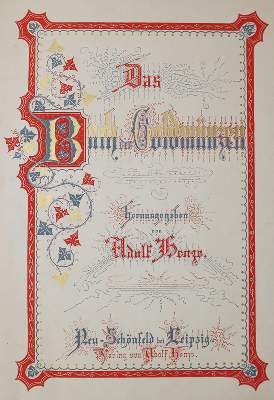 Das
Buch der Goldmünzen
Herausgegeben
von
Adolf Henze.
Neu-Schönfeld bei Leipzig
Verlag von Adolf Henze.